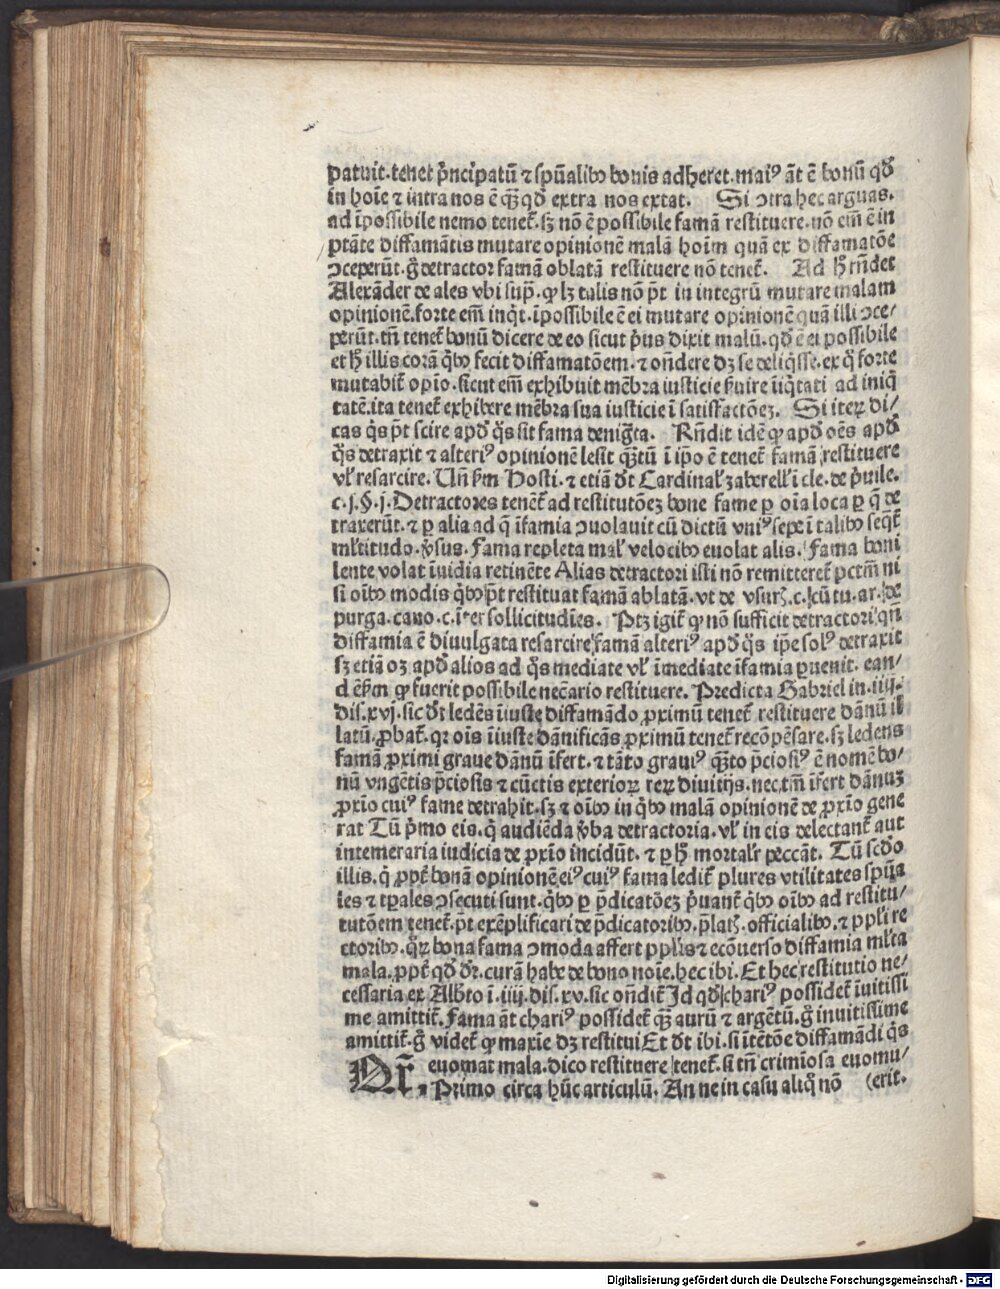 patuit. tenet p̄ncipatū ⁊ spūalibꝰ bonis adheret. maiꝰ āt ē bonū qḋ
in hoīe ⁊ intra nos ē qꝫ qḋ extra nos extat. Si ↄtra hec arguas.
ad īpossibile nemo tenet̄. sꝫ nō ē possibile famā restituere. nō em̄ ē in
ptāte diffamātis mutare opinionē malā hoīm quā ex diffamatōe
ↄceperūt. g̊ detractor famā oblatā restituere nō tenet̄. Ad h̄ rn̄det
Alexāder de ales vbi sup̄. ꝙ lꝫ talis nō pt̄ in integrū mutare malam
opinionē. forte em̄ inq̇t. īpossibile ē ei mutare opinionē quā illi ↄce/
perūt. tn̄ tenet̄ bonū dicere de eo sicut p̄us dixit malū. qḋ ē ei possibile
et h̄ illis corā q̇bꝰ fecit diffamatōem. ⁊ on̄dere dꝫ se deliq̇sse. ex q̊ forte
mutabit̄ opio. sicut em̄ exhibuit mēbra iusticie s̄uire iiq̇tati ad iniq̇
tatē. ita tenet̄ exhibere mēbra sua iusticie ī satisfactōeꝫ. Si iteꝝ di/
cas q̇s pt̄ scire apḋ q̇s sit fama denig̊ta. Rn̄dit idē ꝙ apḋ oēs apḋ
q̊s detraxit ⁊ alteriꝰ opinionē lesit qꝫtū ī ip̄o ē tenet̄ famā restituere
vl̓ resarcire. Un̄ s̄m Hosti. ⁊ etiā dt̄ Cardinal̓ zaberell̓ ī cle. de p̄uile.
c. j. §. j. Detractores tenēt̄ ad restitutōeꝫ bone fame ꝑ oīa loca ꝑ q̄ de
traxerūt. ⁊ ꝑ alia ad q̄ īfamia ↄuolauit cū dictū vniꝰ sepe ī talibꝰ seqt̄
ml̓titudo. v̓sus. Fama repleta mal̓ velocibꝰ euolat alis. Fama boni
lente volat īuidia retinēte Alias detractori isti nō remitteret̄ pctm̄ ni
si oībꝰ modis q̇bꝰ pt̄ restituat famā ablatā. vt de vsurꝭ. c. cū tu. ar. de
purga. cano. c. īter sollicitudīes. Ptꝫ igit̄ ꝙ nō sufficit detractori qn̄
diffamia ē diuulgata resarcire famā alteriꝰ apḋ q̊s ip̄e solꝰ detraxit
sꝫ etiā oꝫ apḋ alios ad q̊s mediate vl̓ īmediate īfamia ꝑuenit. ean/
dē s̄m ꝙ fuerit possibile nec̄ario restituere. Predicta Gabriel in. iiij.
dis. xvj. sic dt̄ ledēs īiuste diffamādo ꝓximū tenet̄ restituere dānū il
latū. ꝓbat̄. qꝛ oīs īiuste dānificās ꝓximū tenet̄ recōpēsare. sꝫ ledens
famā ꝓximi graue dānū īfert. ⁊ tāto grauiꝰ qꝫto p̄ciosiꝰ ē nomē bo/
nū vngētis p̄ciosis ⁊ cūctis exterioꝝ reꝝ diuitijs. nec tm̄ īfert dānuꝫ
ꝓxīo cuiꝰ fame detrahit. sꝫ ⁊ oībꝰ in q̇bꝰ malā opinionē de ꝓxīo gene
rat Tū p̄mo eis. q̇ audiēda v̓ba detractoria. vl̓ in eis delectant̄ aut
intemeraria iudicia de ꝓxīo incidūt. ⁊ ꝑ h̄ mortal̓r peccāt. Tū scd̓o
illis. q̇ ꝓpt̄ bonā opinionē eiꝰ cuiꝰ fama ledit̄ plures vtilitates spūa
les ⁊ tpales ↄsecuti sunt. q̇bꝰ ꝑ p̄dicatōeꝫ p̄uant̄ q̇bꝰ oībꝰ ad restitu/
tutōem tenet̄. pt̄ exēplificari de p̄dicatoribꝰ. p̄latꝭ. officialibꝰ. ⁊ ppl̓i re
ctoribꝰ. q̊ꝝ bona fama ↄmoda affert ppl̓is ⁊ ecōuerso diffamia ml̓ta
mala. ꝓpt̄ qḋ dr̄. curā habe de bono noīe. hec ibi. Et hec restitutio ne/
cessaria ex Alb̓to ī. iiij. dis. xv. sic on̄dit̄ Id qḋ chariꝰ possidet̄ īuitissi
me amittit̄. Fama āt chariꝰ possidet̄ qꝫ aurū ⁊ argētū. g̊ inuitissime
amittit̄. g̊ videt̄ ꝙ maxīe dꝫ restitui Et dt̄ ibi. si ītētōe diffamādi q̇s
euomat mala. dico restituere tenet̄. si tn̄ crimīosa euomu/
Qr̄, Primo circa hūc articulū. An ne in casu aliq̊ nō (erit.
Digitalisierung gefördert durch die Deutsche Forschungsgemeinschaft - DFG